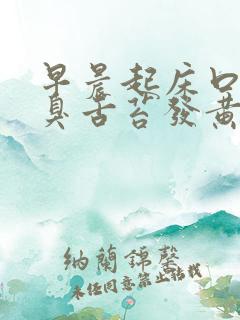 早晨起床口
臭舌苔發黃
納蘭錦馨
未经同意禁止转载